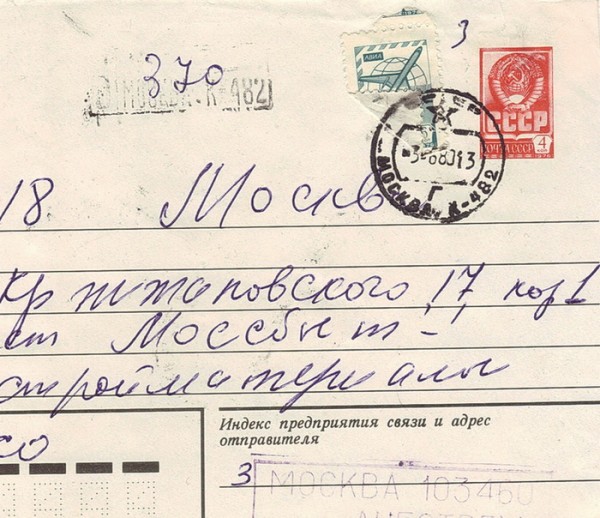 3
370
МОСКВА К-482
АВИА
СССР
ПОЧТА СССР 4
1978
СССР
3-6801 13
МОСКВА К-482
Г
18 Москв
Кржижановского 17 кор 1
Моссбыт-
стройматериалы
со
Индекс предприятия связи и адрес
отправителя
3
МОСКВА 103460